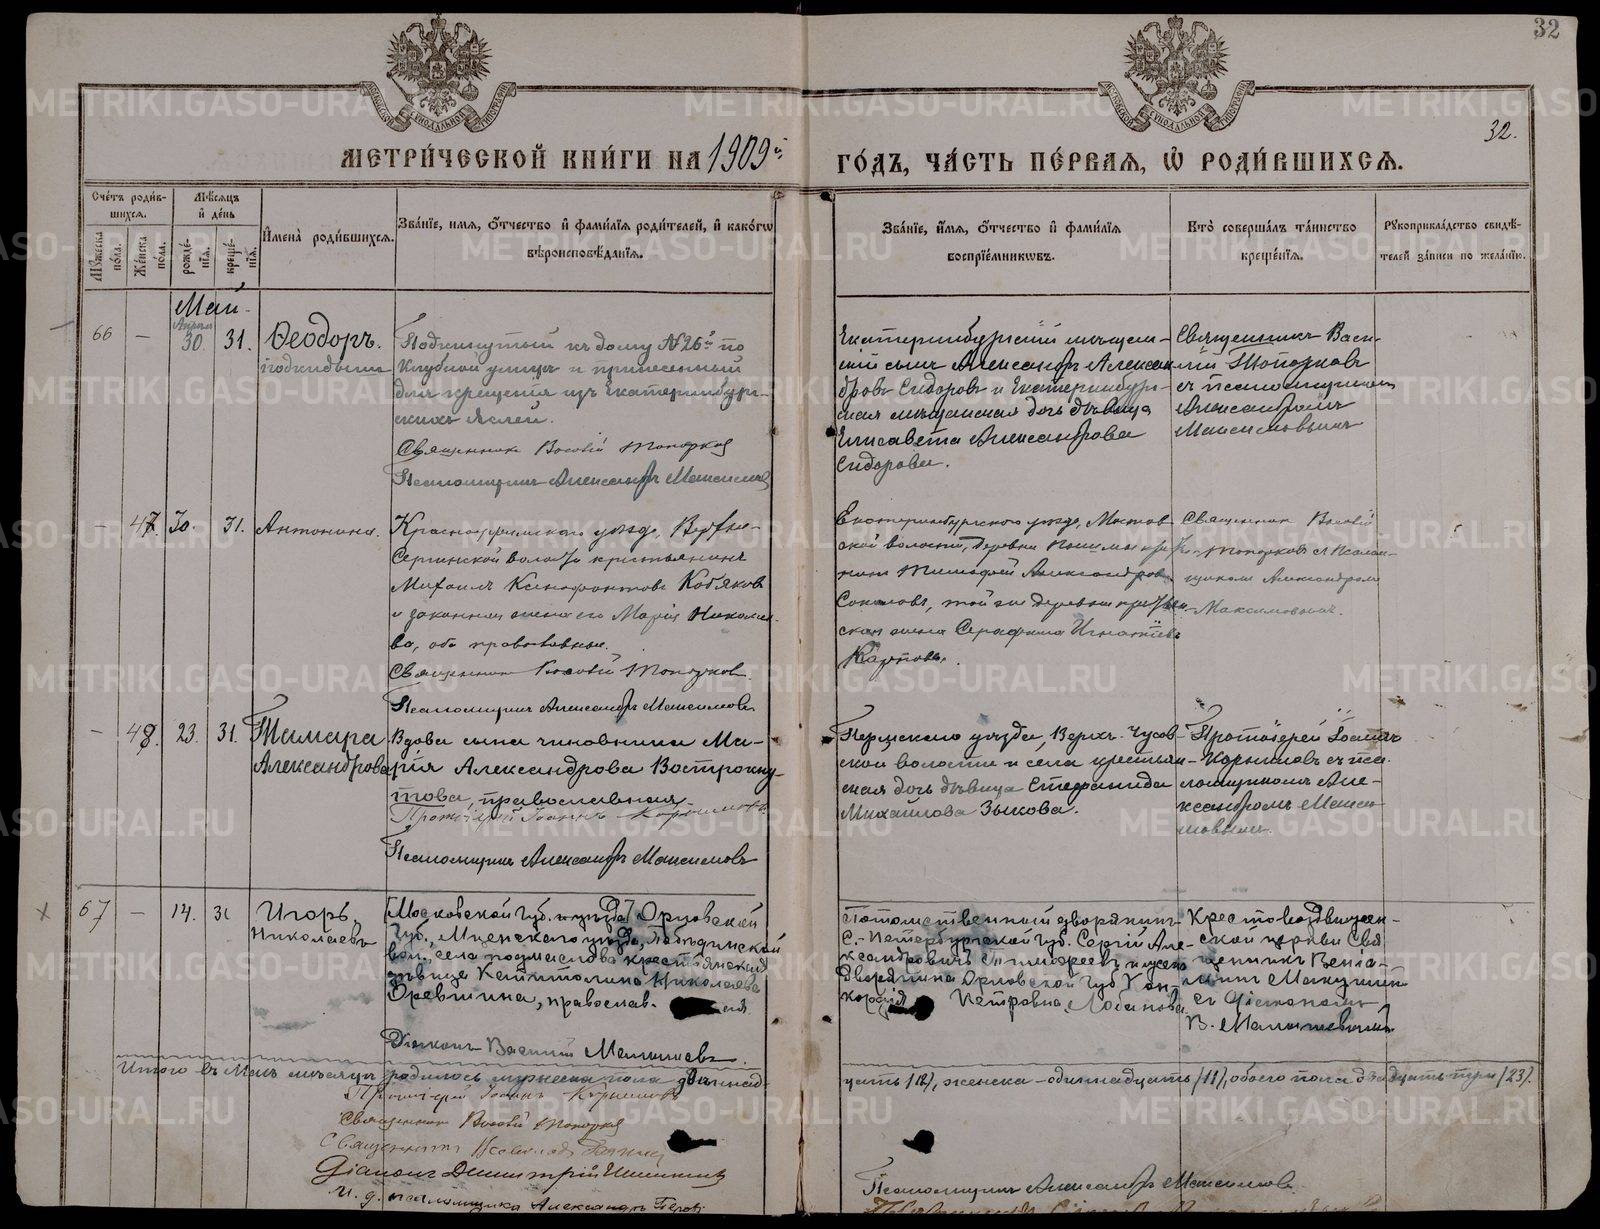 32
32.
МЕТРИ́ЧЕСКОЙ КНИ́ГИ НА 1909й
ГО́ДЪ, ЧА́СТЬ ПЕ́РВАЯ, Ѡ҆ РОДИ́ВШИХСЯ.
Сче́тъ роди́в-
шихся.
Мѣ́сяцъ
и҆ де́нь
Мꙋ́жеска по́ла.
Же́нска по́ла.
рожде́-
нїя.
креще́-
нїя.
И҆мена̀ роди́вшихся.
Зва́нїе, имя, ѻ҆́тчество и҆ фами́лїя роди́телей, и҆ како́гѡ
вѣроисповѣ́данїя.
Зва́нїе, и҆́мя, ѻ҆́тчество и҆ фами́лїя
воспрїе́мникѡвъ.
Кто̀ соверша́лъ та́инство
креще́нїя.
Рꙋкоприкла́дство свидѣ́-
телей за́писи по жела́нїю.
Май.
66 — Апреля 30. 31. Ѳеодоръ.
подкидышъ
Подкинутый къ дому №26й по
Клубной улицѣ и принесенный
для крещенія изъ Екатеринбург-
скихъ Яслей.
Священникъ Василій Топорковъ
Псаломщикъ Александръ Максимовъ
Екатеринбургскій мѣщан-
скій сынъ Александръ Алексан
дровъ Сидоровъ и Екатеринбург-
ская мѣщанская дочь дѣвица
Елисавета Александрова
Сидорова.
Священникъ Васи-
лій Топорковъ
съ псаломщикомъ
Александромъ
Максимовымъ
— 47. 30. 31. Антонина.
Красноуфимскаго уѣзда, Верхне-
Сергинской волости крестьянинъ
Михаилъ Ксенофонтовъ Кобяковъ
и законная жена его Марія Николае-
ва, оба православные.
Священникъ Василій Топорковъ.
Псаломщикъ Александръ Максимовъ
Екатеринбургскаго уѣзда, Мостов
ской волости, деревни
Тимофей Александровъ
Соколовъ, той же деревни крестьян-
ская жена Серафима Игнатіева
Карпова.
Священникъ Василій
Топорковъ съ псалом-
щикомъ Александромъ
Максимовымъ.
— 48. 23. 31. Тамара
Александрова
Вдова сына чиновника Ма-
рія Александрова Вострокну-
това, православная.
Протоіерей Іоаннъ Корниловъ
Псаломщикъ Александръ Максимовъ
Пермскаго уѣзда, Верхъ-Чусов
ской волости и села крестьян-
ская дочь дѣвица Стефанида
Михайлова Зыкова.
Протоіерей Іоаннъ
Корниловъ съ пса-
ломщикомъ Але-
ксандромъ Макси
мовымъ.
67 — 14. 31 Игорь,
Николаевъ
Орловской
Губ., Мценскаго уѣзда,
вол., села крестьянская
дѣвица Капитолина Николаева
православ.
Діаконъ Василій
Потомственный дворянинъ
С.-Петербургской Губ. Сергій Але
ксандровичъ и жена
Дворянина Орловской Губ.
Петровна Лобанова
Крестовоздвижен-
ской церкви Свя
щенникъ Веніа-
минъ
съ діакономъ
В.
Итого въ Маѣ мѣсяцѣ родилось мужеска пола двѣнад-
цать /12/, женска – одиннадцать /11/, обоего пола двадцать три /23/.
Протоіерей Іоаннъ Корниловъ
Священникъ Василій Топорковъ
Священникъ
Діаконъ Димитрій
И. д. псаломщика Александръ
Псаломщикъ Александръ Максимовъ.
METRIKI.GASO-URAL.RU